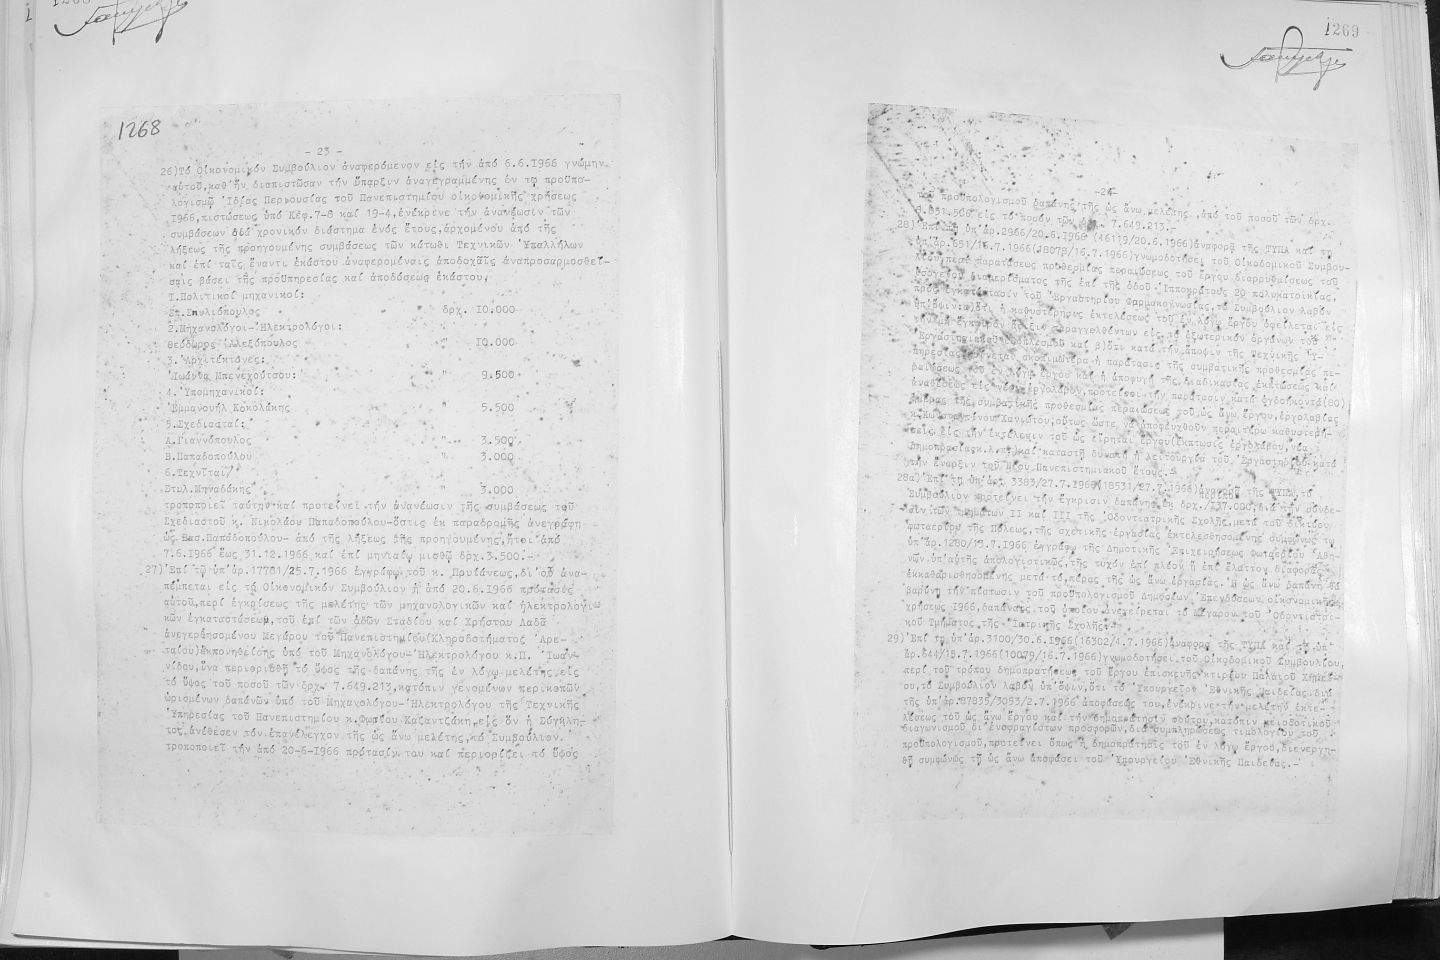 1268
1269
1268
- 23 -
26)Τό Οἰκονομικόν Συμβούλιον ἀναφερόμενον εἰς τήν ἀπό 6.6.1966 γνώμην
αὐτοῦ,καθ'ἥν διαπιστῶσαν τήν ὕπαρξιν ἀναγεγραμμένης ἐν τῷ προϋπο-
λογισμῷ Ἰδίας Περιουσίας τοῦ Πανεπιστημίου οἰκονομικῆς χρήσεως
1966,πιστώσεως ὑπό Κεφ.7-8 καί 19-4,ἐνέκρινε τήν ἀνανέωσιν τῶν
συμβάσεων διά χρονικόν διάστημα ἑνός ἔτους,ἀρχομένου ἀπό τῆς
λήξεως τῆς προηγουμένης συμβάσεως τῶν κάτωθι Τεχνικῶν Ὑπαλλήλων
καί ἐπί ταῖς ἔναντι ἑκάστου ἀναφερομέναις ἀποδοχαῖς ἀναπροσαρμοσθεί-
σαις βάσει τῆς προϋπηρεσίας καί ἀποδόσεως ἑκάστου,
1.Πολιτικοί μηχανικοί:
Σπ.Σπυλιόπουλος δρχ. 10.000
2.Μηχανολόγοι-Ἠλεκτρολόγοι:
Θεόδωρος Ἀλεξόπουλος " 10.000
3. Ἀρχιτέκτονες:
Ἰωάννα Μπενεχούτσου: " 9.500
4. Ὑπομηχανικοί:
Ἐμμανουήλ Κοκολάκης " 5.500
5.Σχεδιασταί:
Α.Γιαννόπουλος " 3.500
Β.Παπαδοπούλου " 3.000
6.Τεχνῖται/
Στυλ.Μηναδάκης " 3.000
τροποποιεῖ ταύτην καί προτείνει τήν ἀνανέωσιν τῆς συμβάσεως τοῦ
Σχεδιαστοῦ κ. Νικολάου Παπαδοπούλου-ὅστις ἐκ παραδρομῆς ἀνεγράφη
ὡς Βασ.Παπαδοπούλου- ἀπό τῆς λήξεως τῆς προηγουμένης,ἤτοι ἀπό
7.6.1966 ἕως 31.12.1966 καί ἐπί μηνιαίῳ μισθῷ δρχ.3.500.-
27)Ἐπί τῷ ὑπ'ἀρ.17781/25.7.1966 ἐγγράφῳ τοῦ κ. Πρυτάνεως,δι'οὗ ἀνα-
πέμπεται εἰς τό Οἰκονομικόν Συμβούλιον ἡ ἀπό 20.6.1966 πρότασις
αὐτοῦ,περί ἐγκρίσεως τῆς μελέτης τῶν μηχανολογικῶν καί ἠλεκτρολογι-
κῶν ἐγκαταστάσεων,τοῦ ἐπί τῶν ὁδῶν Σταδίου καί Χρήστου Λαδᾶ
ἀνεγερθησομένου Μεγάρου τοῦ Πανεπιστημίου(Κληροδοτήματος Ἀρε-
ταίου)ἐκπονηθείσης ὑπό τοῦ Μηχανολόγου-Ἠλεκτρολόγου κ.Π. Ἰωαν-
νίδου,ἵνα περιορισθῇ τό ὕψος τῆς δαπάνης τῆς ἐν λόγῳ μελέτης εἰς
τό ὕψος τοῦ ποσοῦ τῶν δρχ. 7.649.213,κατόπιν γενομένων περικοπῶν
ὡρισμένων δαπανῶν ὑπό τοῦ Μηχανολόγου-Ἠλεκτρολόγου τῆς Τεχνικῆς
Ὑπηρεσίας τοῦ Πανεπιστημίου κ.Φωτίου Καζαντζάκη,εἰς ὅν ἡ Σύγκλη-
τος,ἀνέθεσεν τόν ἐπανέλεγχον τῆς ὡς ἄνω μελέτης,τό Συμβούλιον
τροποποιεῖ τήν ἀπό 20-6-1966 πρότασιν του καί περιορίζει τό ὕψος
-24-
τοῦ προϋπολογισμοῦ δαπάνης τῆς ὡς ἄνω μελέτης ,ἀπό τοῦ ποσοῦ τῶν δρχ.
8.651.506 εἰς τό ποσόν τῶν δρχ. 7.649.213.-
28)Ἐπί τῇ ὑπ'ἀρ.2966/20.6.1966 (16119/20.6.1966)ἀναφορᾷ τῆς ΤΥΠΑ καί τῇ
ὑπ'ἀρ.651/16.7.1966(18078/16.7.1966)γνωμοδοτήσει τοῦ Οἰκοδομικοῦ Συμβου-
λίου,περί παρατάσεως προθεσμίας περαιώσεως τοῦ ἔργου διαρρυθμίσεως τοῦ
ἰσογείου διαμερίσματος τῆς ἐπί τῆς ὁδοῦ Ἱπποκράτους 20 πολυκατοικίας,
πρός ἐγκατάστασιν τοῦ Ἐργαστηρίου Φαρμακογνωσίας,τό Συμβούλιον λαβόν
ὑπ'ὄψιν:α)ὅτι ἡ καθυστέρησις ἐκτελέσεως τοῦ ἐν λόγῳ ἔργου ὀφείλεται εἰς
Ἐργαστηριακοῦ ἐξοπλισμοῦ καί β)ὅτι κατά τήν ἄποψιν τῆς Τεχνικῆς Ὑ-
πηρεσίας κρίνεται σκοπιμώτερα ἡ παράτασις τῆς συμβατικῆς προθεσμίας πε-
ραιώσεως τοῦ ἐν λόγῳ ἔργου καί ἡ ἀποφυγή τῆς διαδικασίας ἐκπτώσεως καί
ἀναθέσεως εἰς νέον ἐργολάβον,προτείνει τήν παράτασιν κατά ὀγδοήκοντα(80)
ἡμέρας τῆς συμβατικῆς προθεσμίας περαιώσεως τοῦ ὡς ἄνω ἔργου,ἐργολαβίας
οὕτως ὥστε νά ἀποφευχθοῦν περαιτέρω καθυστερή-
σεις εἰς τήν ἐκτέλεσιν τοῦ ὡς εἴρηται ἔργου(ἔκπτωσις ἐργολάβου,νέα
δημοπρασία,κ.λ.π.)καί καταστῇ δυνατή ἡ λειτουργία τοῦ Ἐργαστηρίου κατά
τήν ἔναρξιν τοῦ νέου Πανεπιστημιακοῦ ἔτους.-
28α)Ἐπί τῇ ὑπ'ἀρ. 3383/27.7.1966(18531/27.7.1966)ἀναφορᾷ τῆς ΤΥΠΑ,τό
Συμβούλιον προτείνει τήν ἔγκρισιν δαπάνης ἐκ δρχ.137.000,διά τήν σύνδε-
σιν τῶν τμημάτων ΙΙ καί ΙΙΙ τῆς Ὀδοντιατρικῆς Σχολῆς μετά τοῦ δικτύου
φωταερίου τῆς Πόλεως,τῆς σχετικῆς ἐργασίας ἐκτελεσθησομένης συμφώνως τῷ
ὑπ'ἀρ.1280/13.7.1966 ἐγγράφῳ τῆς Δημοτικῆς Ἐπιχειρήσεως Φωταερίου Ἀθη-
νῶν ὑπ'αὐτῆς ἀπολογιστικῶς,τῆς τυχόν ἐπί πλέον ἤ ἐπί ἔλαττον διαφορᾶς
ἐκκαθαρισθησομένης μετά τό πέρας τῆς ὡς ἄνω ἐργασίας.Ἡ ὡς ἄνω δαπάνη θά
βαρύνῃ τήν πίστωσιν τοῦ προϋπολογισμοῦ Δημοσίων Ἐπενδύσεων οἰκονομικῆς
χρήσεως 1966,δαπάναις τοῦ ὁποίου ἀνεγείρεται τό Μέγαρον τοῦ Ὀδοντιατρι-
κοῦ Τμήματος τῆς Ἰατρικῆς Σχολῆς.-
29)Ἐπί τῇ ὑπ'ἀρ.3100/30.6.1966(16302/4.7.1966)ἀναφορᾷ τῆς ΤΥΠΑ καί τῇ ὑπ'
ἀρ.644/15.7.1966(10079/16.7.1966)γνωμοδοτήσει τοῦ Οἰκοδομικοῦ Συμβουλίου,
περί τοῦ τρόπου δημοπρατήσεως τοῦ ἔργου ἐπισκευῆς κτιρίου Παλαιοῦ Χημεί-
ου,τό Συμβούλιον λαβόν ὑπ'ὄψιν,ὅτι τό Ὑπουργεῖον Ἐθνικῆς Παιδείας διά
τῆς ὑπ'ἀρ.87835/3053/2.7.1966 ἀποφάσεώς του,ἐνέκρινε τήν μελέτην ἐκτε-
λέσεως τοῦ ὡς ἄνω ἔργου καί τήν δημοπράτησιν τούτου,κατόπιν μειοδοτικοῦ
διαγωνισμοῦ δι'ἐνσφραγίστων προσφορῶν,διά συμπληρώσεως τιμολογίου τοῦ
προϋπολογισμοῦ,προτείνει ὅπως ἡ δημοπράτησις τοῦ ἐν λόγῳ ἔργου,διενεργη-
θῇ συμφώνως τῇ ὡς ἄνω ἀποφάσει τοῦ Ὑπουργείου Ἐθνικῆς Παιδείας.-